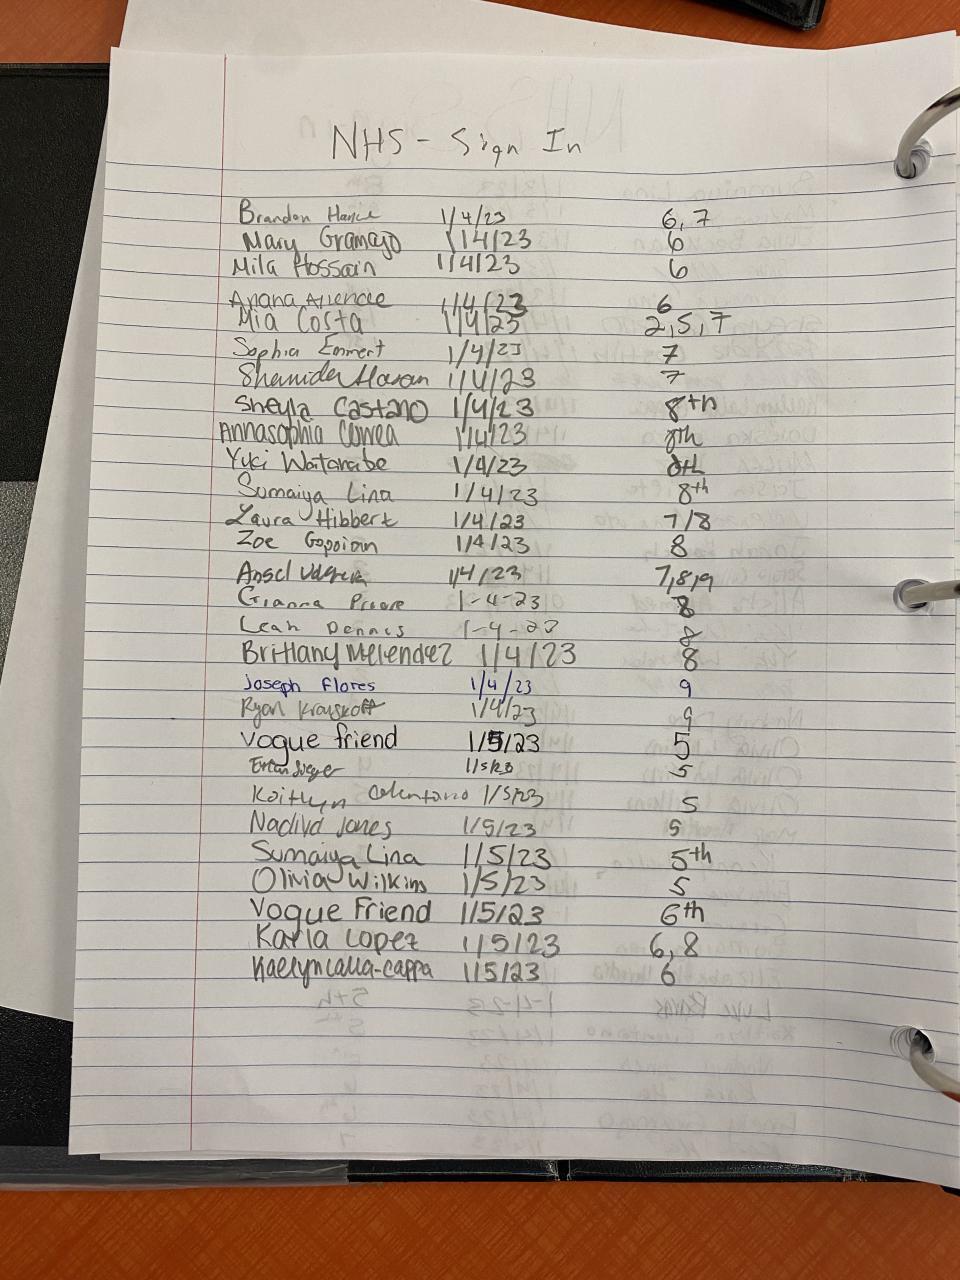 NHS - Sign In
Brandon Hance 1/4/23 6, 7
Mary Gramajo 1/4/23 6
Mila Hossain 1/4/23 6
Ariana Allende 1/4/23 6
Mia Costa 1/4/23 2, 5, 7
Sophia Emmert 1/4/23 7
Shamida Hasan 1/4/23 7
Sheyla Castano 1/4/23 8th
Annasophia Correa 1/4/23 8th
Yuki Watanabe 1/4/23 8th
Sumaiya Lina 1/4/23 8th
Laura Hibbert 1/4/23 7/8
Zoe Gopoian 1/4/23 8
1/4/23 7,8,9
Gianna 1-4-23 8
Leah Dennis 1-4-23 8
Brittany Melendez 1/4/23 8
Joseph Flores 1/4/23 9
Ryan 1/4/23 9
Vogue friend 1/5/23 5
1/5/23 5
Kaitlyn Celentano 1/5/23 5
Nadiya Jones 1/5/23 5
Sumaiya Lina 1/5/23 5th
Olivia Wilkins 1/5/23 5
Vogue Friend 1/5/23 6th
Karla Lopez 1/5/23 6, 8
Kaelyn calla-cappa 1/5/23 6